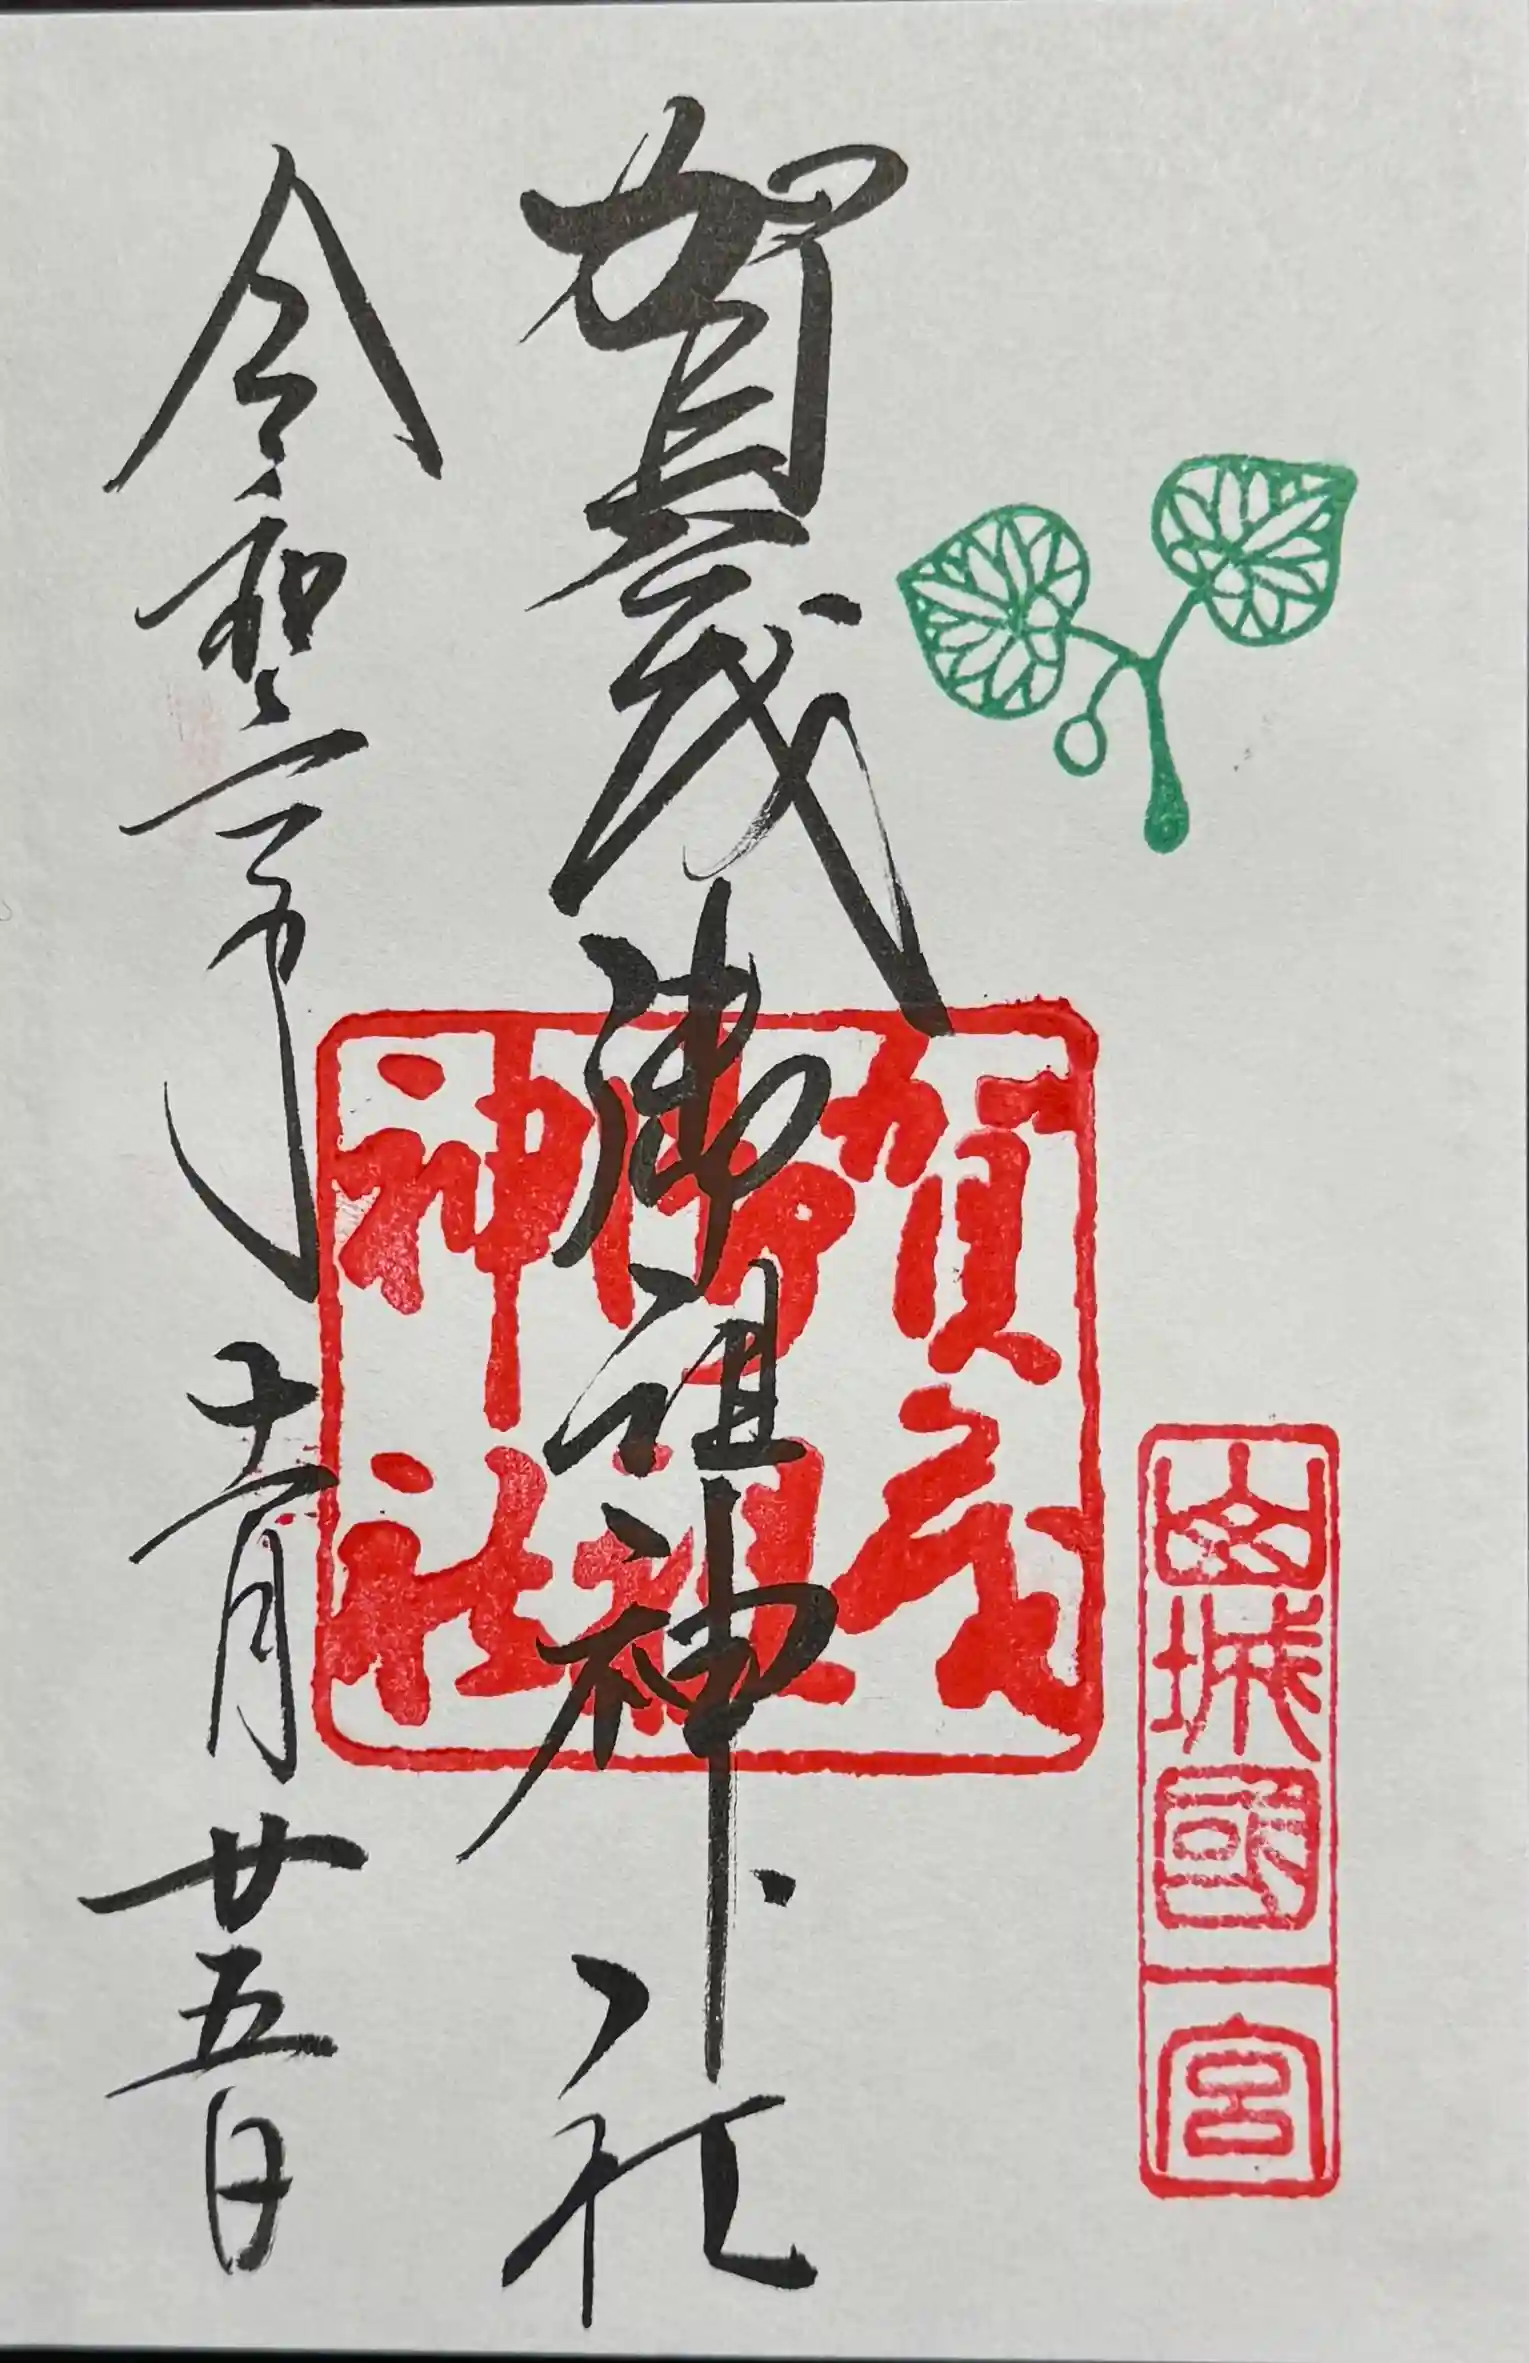 山城國一宮
賀茂御祖神社
賀茂
御祖
神社
令和三年十二月廿五日